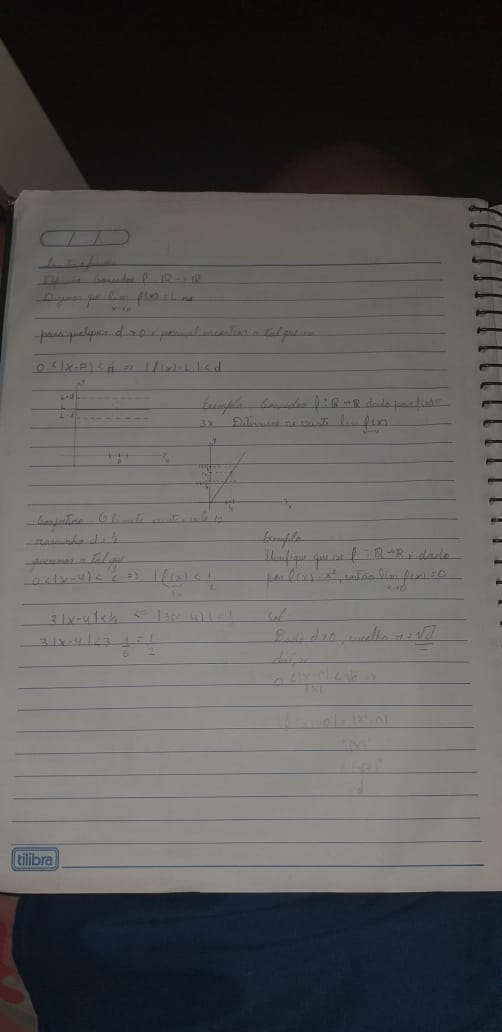 Definição Considere f: R → R
Digamos que lim f(x) = L se
x→p
para qualquer d > 0 é possível encontrar r tal que
0 < |x-p| < r => |f(x)-L| < d
y
L+d
L
L-d
p
x
Exemplo Considere f: R → R dada por f(x) =
3x Determine se existe lim f(x)
x→4
y
4
x
Conjectura: O limite existe e vale 12
d = 1/2
queremos r tal que
0 < |x-4| < 1/6 => |f(x) < 1/2
3|x-4| < 1/2 <= |3(x-4)| < 1/2
3|x-4| < 3 1/6 = 1/2
Exemplo
Verifique que se f: R → R, dada
por f(x) = x², então lim f(x) = 0
x→0
Sol
Dado d > 0, escolho r = √d
daí,
0 < |x-0| < √d =>
|x|
|f(x)-0| = |x²-0|
tilibra